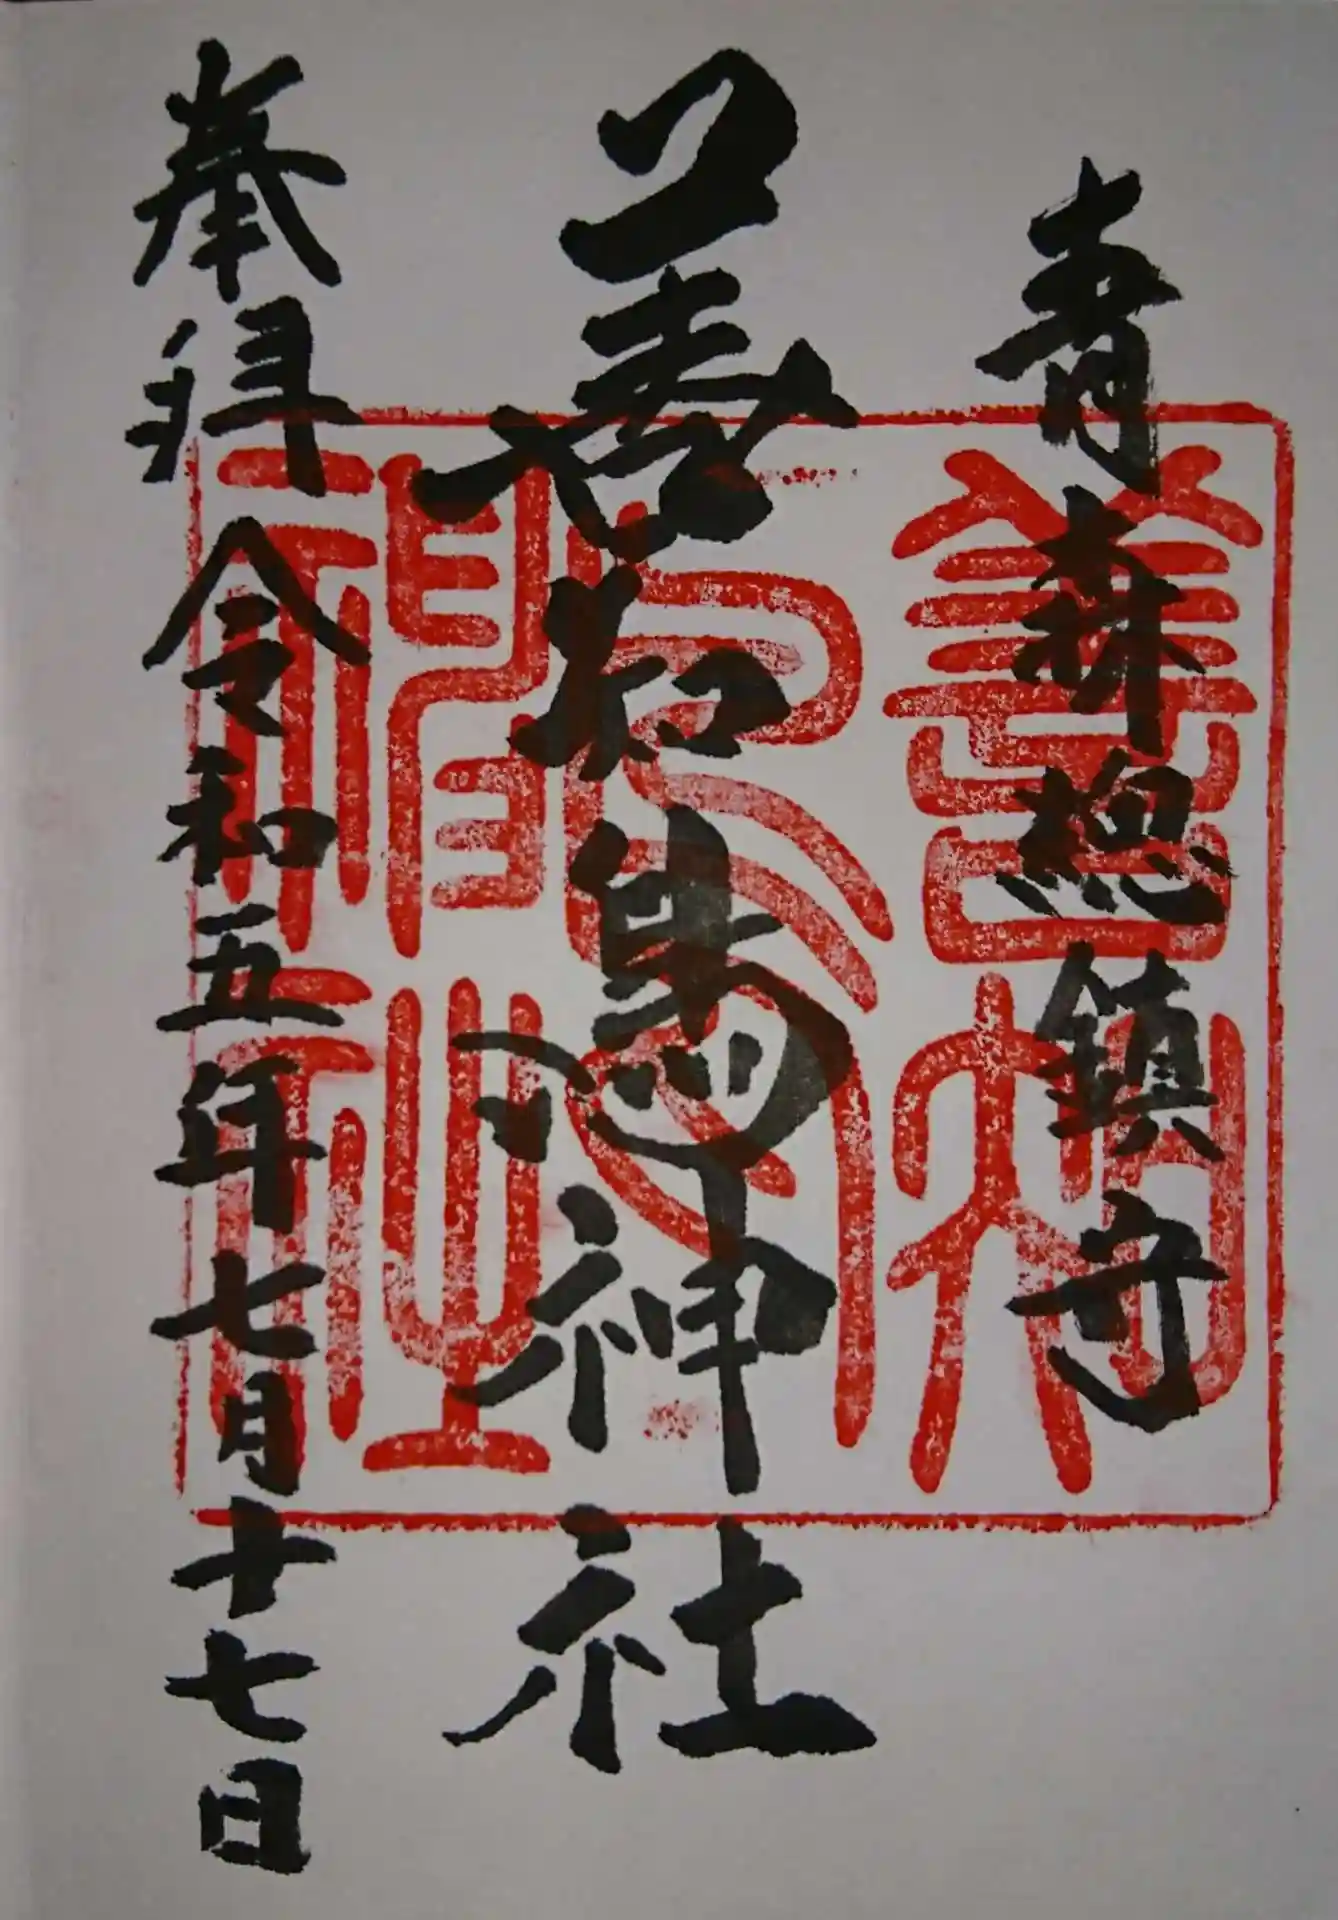 青森總鎮守
善知鳥神社
奉拝 令和五年七月十七日
善知鳥神社